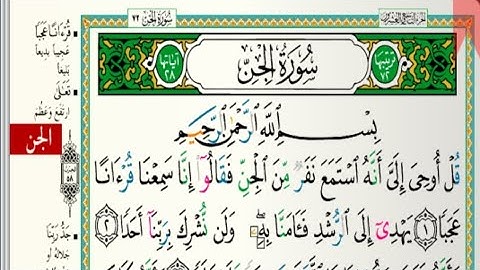 سُورَةُ الجِنّ ٧٢
الجزء التاسع والعشرون
ترتيبها ٧٢
سُورَةُ الجِنِّ
آياتها ٢٨
بِسْمِ ٱللَّهِ ٱلرَّحْمَٰنِ ٱلرَّحِيمِ
قُلْ أُوحِىَ إِلَىَّ أَنَّهُ ٱسْتَمَعَ نَفَرٌ مِّنَ ٱلْجِنِّ فَقَالُوٓا۟ إِنَّا سَمِعْنَا قُرْءَانًا
عَجَبًا ١ يَهْدِىٓ إِلَى ٱلرُّشْدِ فَـَٔامَنَّا بِهِۦ ۖ وَلَن نُّشْرِكَ بِرَبِّنَآ أَحَدًا ٢
قُرْءَانًا عَجَبًا
عجيباً بديعاً
بليغاً
تَعَالَىٰ
ارتفع وعَظُم
الجن
الحزب
٥٨
جَدُّ رَبِّنَا
جلاله أو